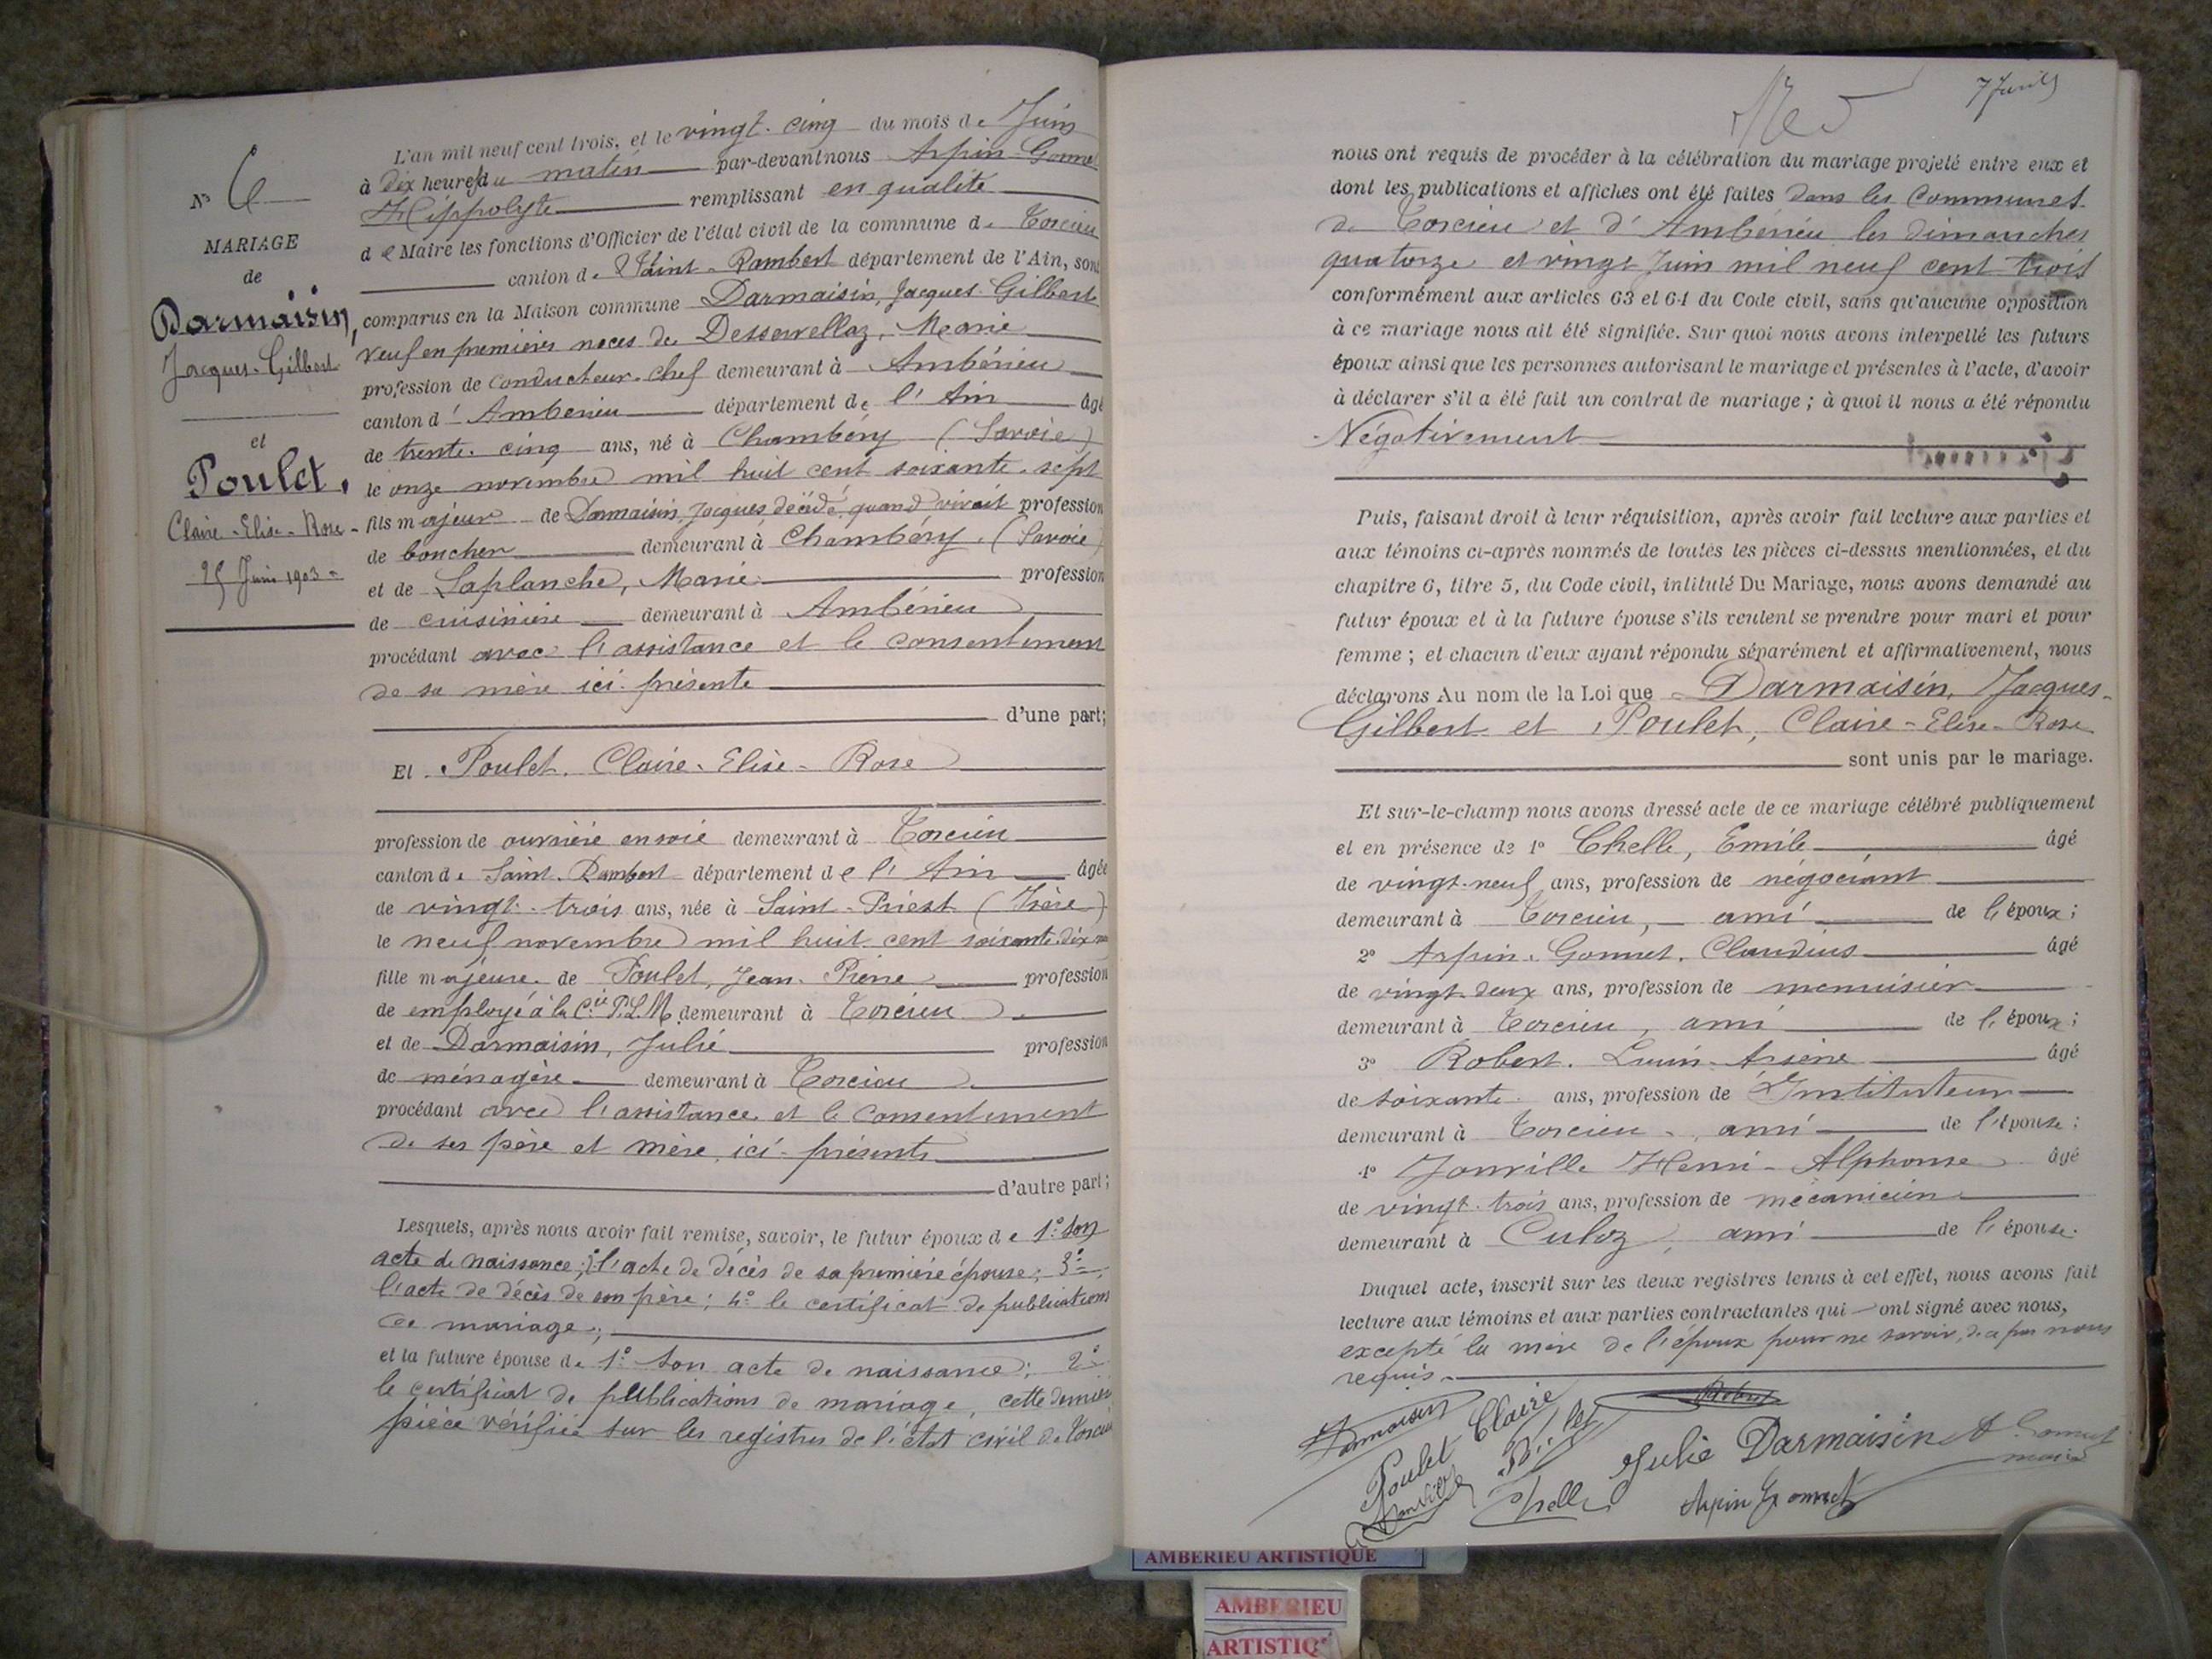 N° 6
MARIAGE
de
Darmaisin,
Jacques-Gilbert
et
Poulet,
Claire-Elise-Rose
25 Juin 1903
L'an mil neuf cent trois, et le vingt-cinq du mois de Juin
à dix heures du matin par-devant nous Arpin-Gonnet
Hippolyte remplissant en qualité
de Maire les fonctions d'Officier de l'état civil de la commune de Torcieu
canton de Saint-Rambert département de l'Ain, sont
comparus en la Maison commune Darmaisin, Jacques-Gilbert
veuf en premières noces de Desservellaz, Marie
profession de conducteur-chef demeurant à Ambérieu
canton d'Amberieu département de l'Ain âgé
de trente-cinq ans, né à Chambéry (Savoie)
le onze novembre mil huit cent soixante-sept
fils majeur de Darmaisin, Jacques, décédé, quand vivait profession
de boucher demeurant à Chambéry. (Savoie)
et de Laplanche, Marie profession
de cuisinière demeurant à Ambérieu
procédant avec l'assistance et le consentement
de sa mère ici présente
d'une part;
Et Poulet. Claire-Elise-Rose
profession de ouvrière en soie demeurant à Torcieu
canton de Saint-Rambert département de l'Ain âgée
de vingt-trois ans, née à Saint-Priest (Isère)
le neuf novembre mil huit cent soixante-dix-neuf
fille majeure de Poulet, Jean-Pierre profession
de employé à la Cie P.L.M. demeurant à Torcieu
et de Darmaisin, Julie profession
de ménagère demeurant à Torcieu
procédant avec l'assistance et le consentement
de ses père et mère, ici présents
d'autre part;
Lesquels, après nous avoir fait remise, savoir, le futur époux de 1° son
acte de naissance; 2° l'acte de décès de sa première épouse; 3°
l'acte de décès de son père; 4° le certificat de publications
de mariage;
et la future épouse de 1° son acte de naissance; 2°
le certificat de publications de mariage, cette dernière
pièce vérifiée sur les registres de l'état civil de Torcieu
nous ont requis de procéder à la célébration du mariage projeté entre eux et
dont les publications et affiches ont été faites dans les Communes
de Torcieu et d'Ambérieu les dimanches
quatorze et vingt Juin mil neuf cent trois
conformément aux articles 63 et 64 du Code civil, sans qu'aucune opposition
à ce mariage nous ait été signifiée. Sur quoi nous avons interpellé les futurs
époux ainsi que les personnes autorisant le mariage et présentes à l'acte, d'avoir
à déclarer s'il a été fait un contrat de mariage; à quoi il nous a été répondu
Négativement
Puis, faisant droit à leur réquisition, après avoir fait lecture aux parties et
aux témoins ci-après nommés de toutes les pièces ci-dessus mentionnées, et du
chapitre 6, titre 5, du Code civil, intitulé Du Mariage, nous avons demandé au
futur époux et à la future épouse s'ils veulent se prendre pour mari et pour
femme; et chacun d'eux ayant répondu séparément et affirmativement, nous
déclarons Au nom de la Loi que Darmaisin, Jacques-
Gilbert et Poulet, Claire-Elise-Rose
sont unis par le mariage.
Et sur-le-champ nous avons dressé acte de ce mariage célébré publiquement
et en présence de 1° Chelle, Emile âgé
de vingt-neuf ans, profession de négociant
demeurant à Torcieu, ami de l'époux;
2° Arpin-Gonnet. Claudius âgé
de vingt-deux ans, profession de menuisier
demeurant à Torcieu, ami de l'époux;
3° Robert. Louis-Arsène âgé
de soixante ans, profession de Instituteur
demeurant à Torcieu, ami de l'épouse;
4° Jonville Henri-Alphonse âgé
de vingt-trois ans, profession de mécanicien
demeurant à Culoz, ami de l'épouse.
Duquel acte, inscrit sur les deux registres tenus à cet effet, nous avons fait
lecture aux témoins et aux parties contractantes qui ont signé avec nous,
excepté la mère de l'époux pour ne savoir, de ce par nous
requis.
Darmaisin Poulet Claire Robert
Julie Darmaisin A Gonnet
maire
Jonville Chelle Arpin Gonnet
AMBERIEU ARTISTIQUE
AMBERIEU
ARTISTIQ